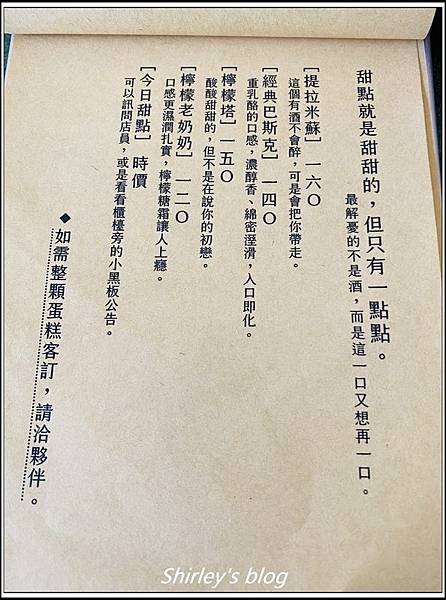 甜點就是甜甜的，但只有一點點。
最解憂的不是酒，而是這一口又想再一口。
［提拉米蘇］ 一六〇
這個有酒不會醉，可是會把你帶走。
［經典巴斯克］ 一四〇
重乳酪的口感，濃醇香、綿密溼滑，入口即化。
［檸檬塔］ 一五〇
酸酸甜甜的，但不是在說你的初戀。
［檸檬老奶奶］ 一二〇
口感更濕潤扎實，檸檬糖霜讓人上癮。
［今日甜點］ 時價
可以訊問店員，或是看看櫃檯旁的小黑板公告。
◆如需整顆蛋糕客訂，請洽夥伴。
Shirley's blog